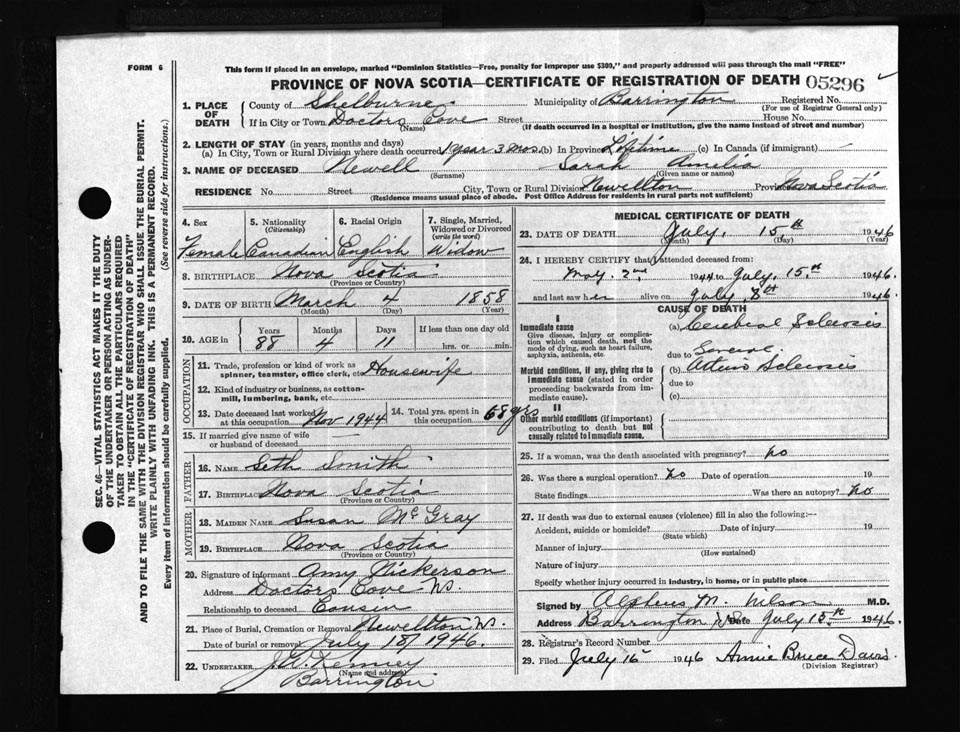 FORM 6
This form if placed in an envelope, marked "Dominion Statistics—Free, penalty for improper use $300," and properly addressed will pass through the mail "FREE"
PROVINCE OF NOVA SCOTIA—CERTIFICATE OF REGISTRATION OF DEATH 05296
1. PLACE OF DEATH
County of Shelburne Municipality of Barrington Registered No.
(For use of Registrar General only)
If in City or Town Doctors Cove Street House No.
(Name) (If death occurred in a hospital or institution, give the name instead of street and number)
2. LENGTH OF STAY (in years, months and days)
(a) In City, Town or Rural Division where death occurred 1 year 3 mos. (b) In Province Lifetime (c) In Canada (if immigrant) —
3. NAME OF DECEASED Newell Sarah Amelia
(Surname) (Given name or names)
RESIDENCE No. Street City, Town or Rural Division Newellton Province Nova Scotia
(Residence means usual place of abode. Post Office Address for residents in rural parts not sufficient)
4. Sex Female
5. Nationality (Citizenship) Canadian
6. Racial Origin English
7. Single, Married, Widowed or Divorced (write the word) Widow
8. BIRTHPLACE Nova Scotia
(Province or Country)
9. DATE OF BIRTH March 4 1858
(Month) (Day) (Year)
10. AGE in Years 88 Months 4 Days 11 If less than one day old hrs. or min.
OCCUPATION
11. Trade, profession or kind of work as spinner, teamster, office clerk, etc. Housewife
12. Kind of industry or business, as cotton-mill, lumbering, bank, etc.
13. Date deceased last worked at this occupation Nov 1944
14. Total yrs. spent in this occupation 68 yrs
15. If married give name of wife or husband of deceased —
FATHER
16. NAME Seth Smith
17. BIRTHPLACE Nova Scotia
(Province or Country)
MOTHER
18. MAIDEN NAME Susan McGray
19. BIRTHPLACE Nova Scotia
(Province or Country)
20. Signature of informant Amy Nickerson
Address Doctors Cove NS.
Relationship to deceased Cousin
21. Place of Burial, Cremation or Removal Newellton NS.
Date of burial or removal July 18/ 1946.
22. UNDERTAKER Kenney
(Name and address)
Barrington
MEDICAL CERTIFICATE OF DEATH
23. DATE OF DEATH July, 15th 1946
(Month) (Day) (Year)
24. I HEREBY CERTIFY that I attended deceased from
May. 2nd 1944 to July, 15th 1946.
and last saw her alive on July, 8th 1946.
CAUSE OF DEATH
I
Immediate cause
Give disease, injury or complication which caused death, not the mode of dying, such as heart failure, asphyxia, asthenia, etc
(a) Cerebral Sclerosis
due to General
Morbid conditions, if any, giving rise to immediate cause (stated in order proceeding backwards from immediate cause).
(b) Sclerosis
due to
(c)
II
Other morbid conditions (if important) contributing to death but not causally related to immediate cause.
25. If a woman, was the death associated with pregnancy? no
26. Was there a surgical operation? No Date of operation 19
State findings Was there an autopsy? no
27. If death was due to external causes (violence) fill in also the following:—
Accident, suicide or homicide? Date of injury 19
(State which)
Manner of injury
(How sustained)
Nature of injury
Specify whether injury occurred in industry, in home, or in public place
Signed by Alpheus M. Wilson M.D.
Address Barrington NS Date July 15th 1946.
28. Registrar's Record Number
29. Filed July 16 1946 Annie Bruce Davis
(Division Registrar)
SEC. 46—VITAL STATISTICS ACT MAKES IT THE DUTY
OF THE UNDERTAKER OR PERSON ACTING AS UNDER-
TAKER TO OBTAIN ALL THE PARTICULARS REQUIRED
IN THE "CERTIFICATE OF REGISTRATION OF DEATH"
AND TO FILE THE SAME WITH THE DIVISION REGISTRAR WHO SHALL ISSUE THE BURIAL PERMIT.
WRITE PLAINLY WITH UNFADING INK. THIS IS A PERMANENT RECORD.
Every item of information should be carefully supplied. (See reverse side for instructions.)